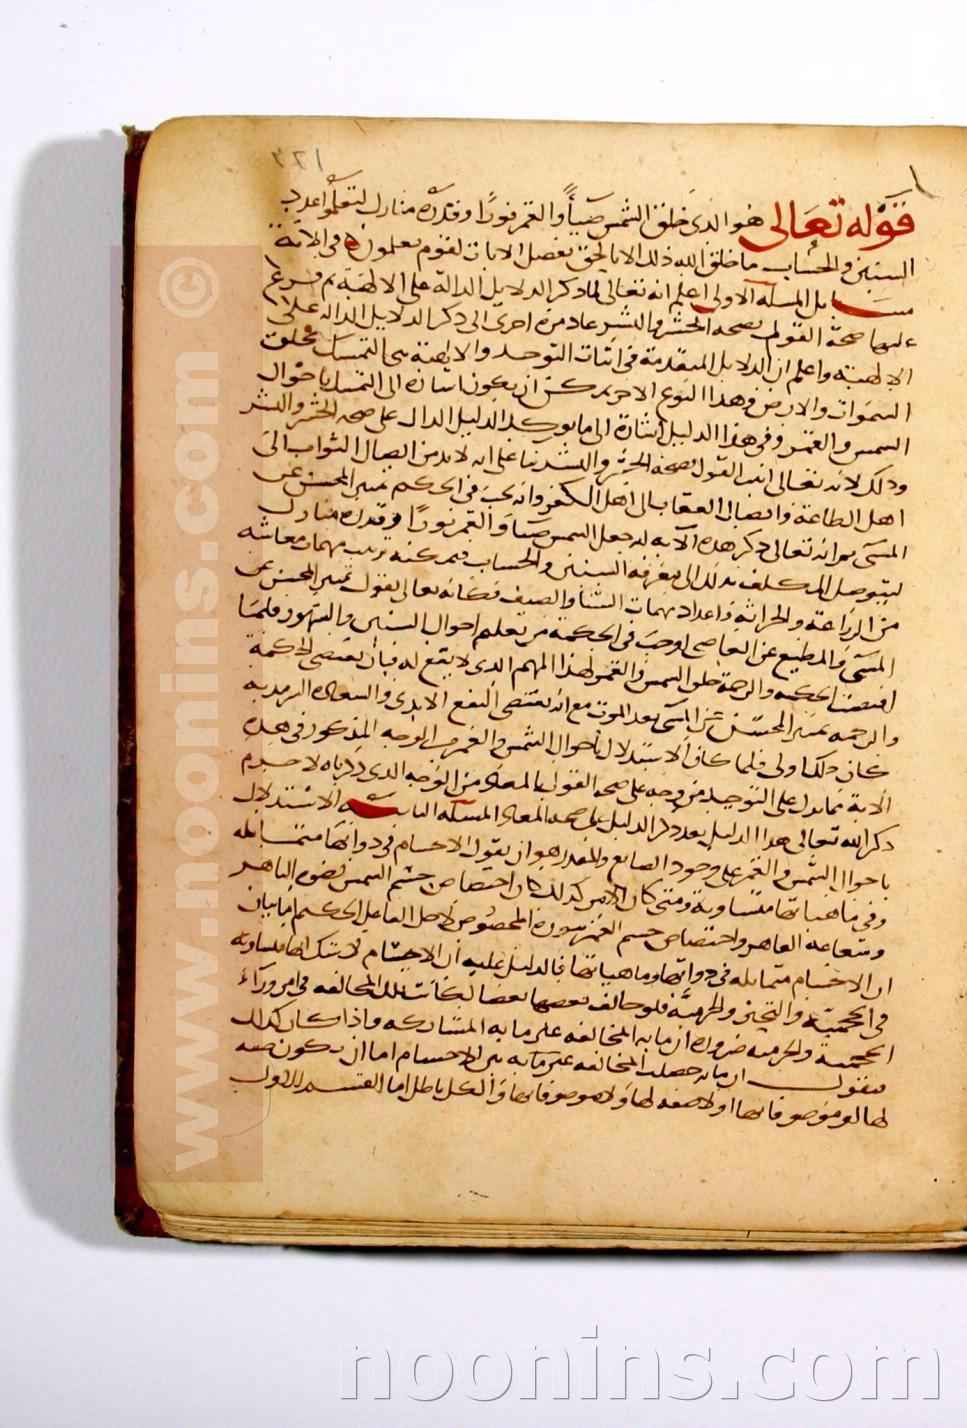 ٢٢١
قوله تعالى هو الذى خلق الشمس ضيأً والقمر نورًا وقدره منازل لتعلموا عدد
السنين والحساب ما خلق الله ذلك الا بالحق يفصل الايات لقوم يعلمون فى الاية
مسايل المسلة الاولى اعلم انه تعالى لما ذكر الدلايل الدالة على الالهية ثم فرع
عليها صحة القول بصحه الحشر والنشر عاد مرة اخرى الى ذكر الدلايل الداله على
الالهية واعلم ان الدلايل المتقدمة فى اثبات التوحيد والالهية هى التمسك بخلق
السموات والارض وهذا النوع الاخر يمكن ان يكون اشارة الى التمسك باحوال
الشمس والقمر وفى هذا الدليل اشارة الى ما يوكد الدليل الدال على صحه الحشر والنشر
وذلك لانه تعالى اثبت القول بصحة الحشر والنشر بنا على انه لا بد من ايصال الثواب الى
اهل الطاعة وايصال العقاب الى اهل الكفر وانه يجب فى الحكم تمييز المحسن عن
المسى ثم انه تعالى ذكر هذه الآية انه جعل الشمس ضيا والقمر نورًا وقدره منازل
ليتوصل المكلف بذلك الى معرفة السنين والحساب فيمكنه ترتيب مهمات معاشه
من الزراعة والحراثه واعداد مهمات الشتا والصيف فكانه تعالى يقول تمييز المحسن عن
المسى والمطيع عن العاصى اوجب فى الحكمة من تعليم احوال السنين والشهور فلما
اقتضت الحكمه والرحمة خلق الشمس والقمر لهذا المهم الذى لا يقع له فبان يقتضى الحكمة
والرحمه تمييز المحسن عن المسى بعد الموت مع انه يقتضى النفع الابدى والسعاده السرمديه
كان ذلك اولى فلما كان الاستدلال باحوال الشمس والقمر من الوجه المذكور فى هذه
الاية مما يدل على التوحيد من وجه وعلى صحه القول بالمعاد من الوجه الذى ذكرناه لا جرم
ذكر الله تعالى هذا الدليل بعد ذكر الدليل على صحه المعاد المسله الثانيه الاستدلال
باحوال الشمس والقمر على وجود الصانع والمقدر هو ان يقول الاجسام فى ذواتها متماثله
وفى ماهياتها متساوية ومتى كان الامر كذلك كان اختصاص جسم الشمس بضوه الباهر
وشعاعه القاهر واختصاص جسم القمر بنوره المخصوص لاجل الفاعل الحكيم اما بيان
ان الاجسام متماثله فى ذواتها وماهياتها فالدليل عليه ان الاجسام لا شك انها متساويه
فى الحجمية والتحيز والجرمية فلو خالف بعضها بعضا لكانت تلك المخالفه فى امر وراء
الحجمية والجرمية ضروره ان ما به المخالفه غير ما به المشاركه واذا كان كذلك
فنقول ان ما به حصلت المخالفه من الاجسام اما ان يكون صفه
لها او موصوفا بها او لا صفه لها ولا موصوفا بها والكل باطل اما القسم الاول
www.noonins.com ©
noonins.com